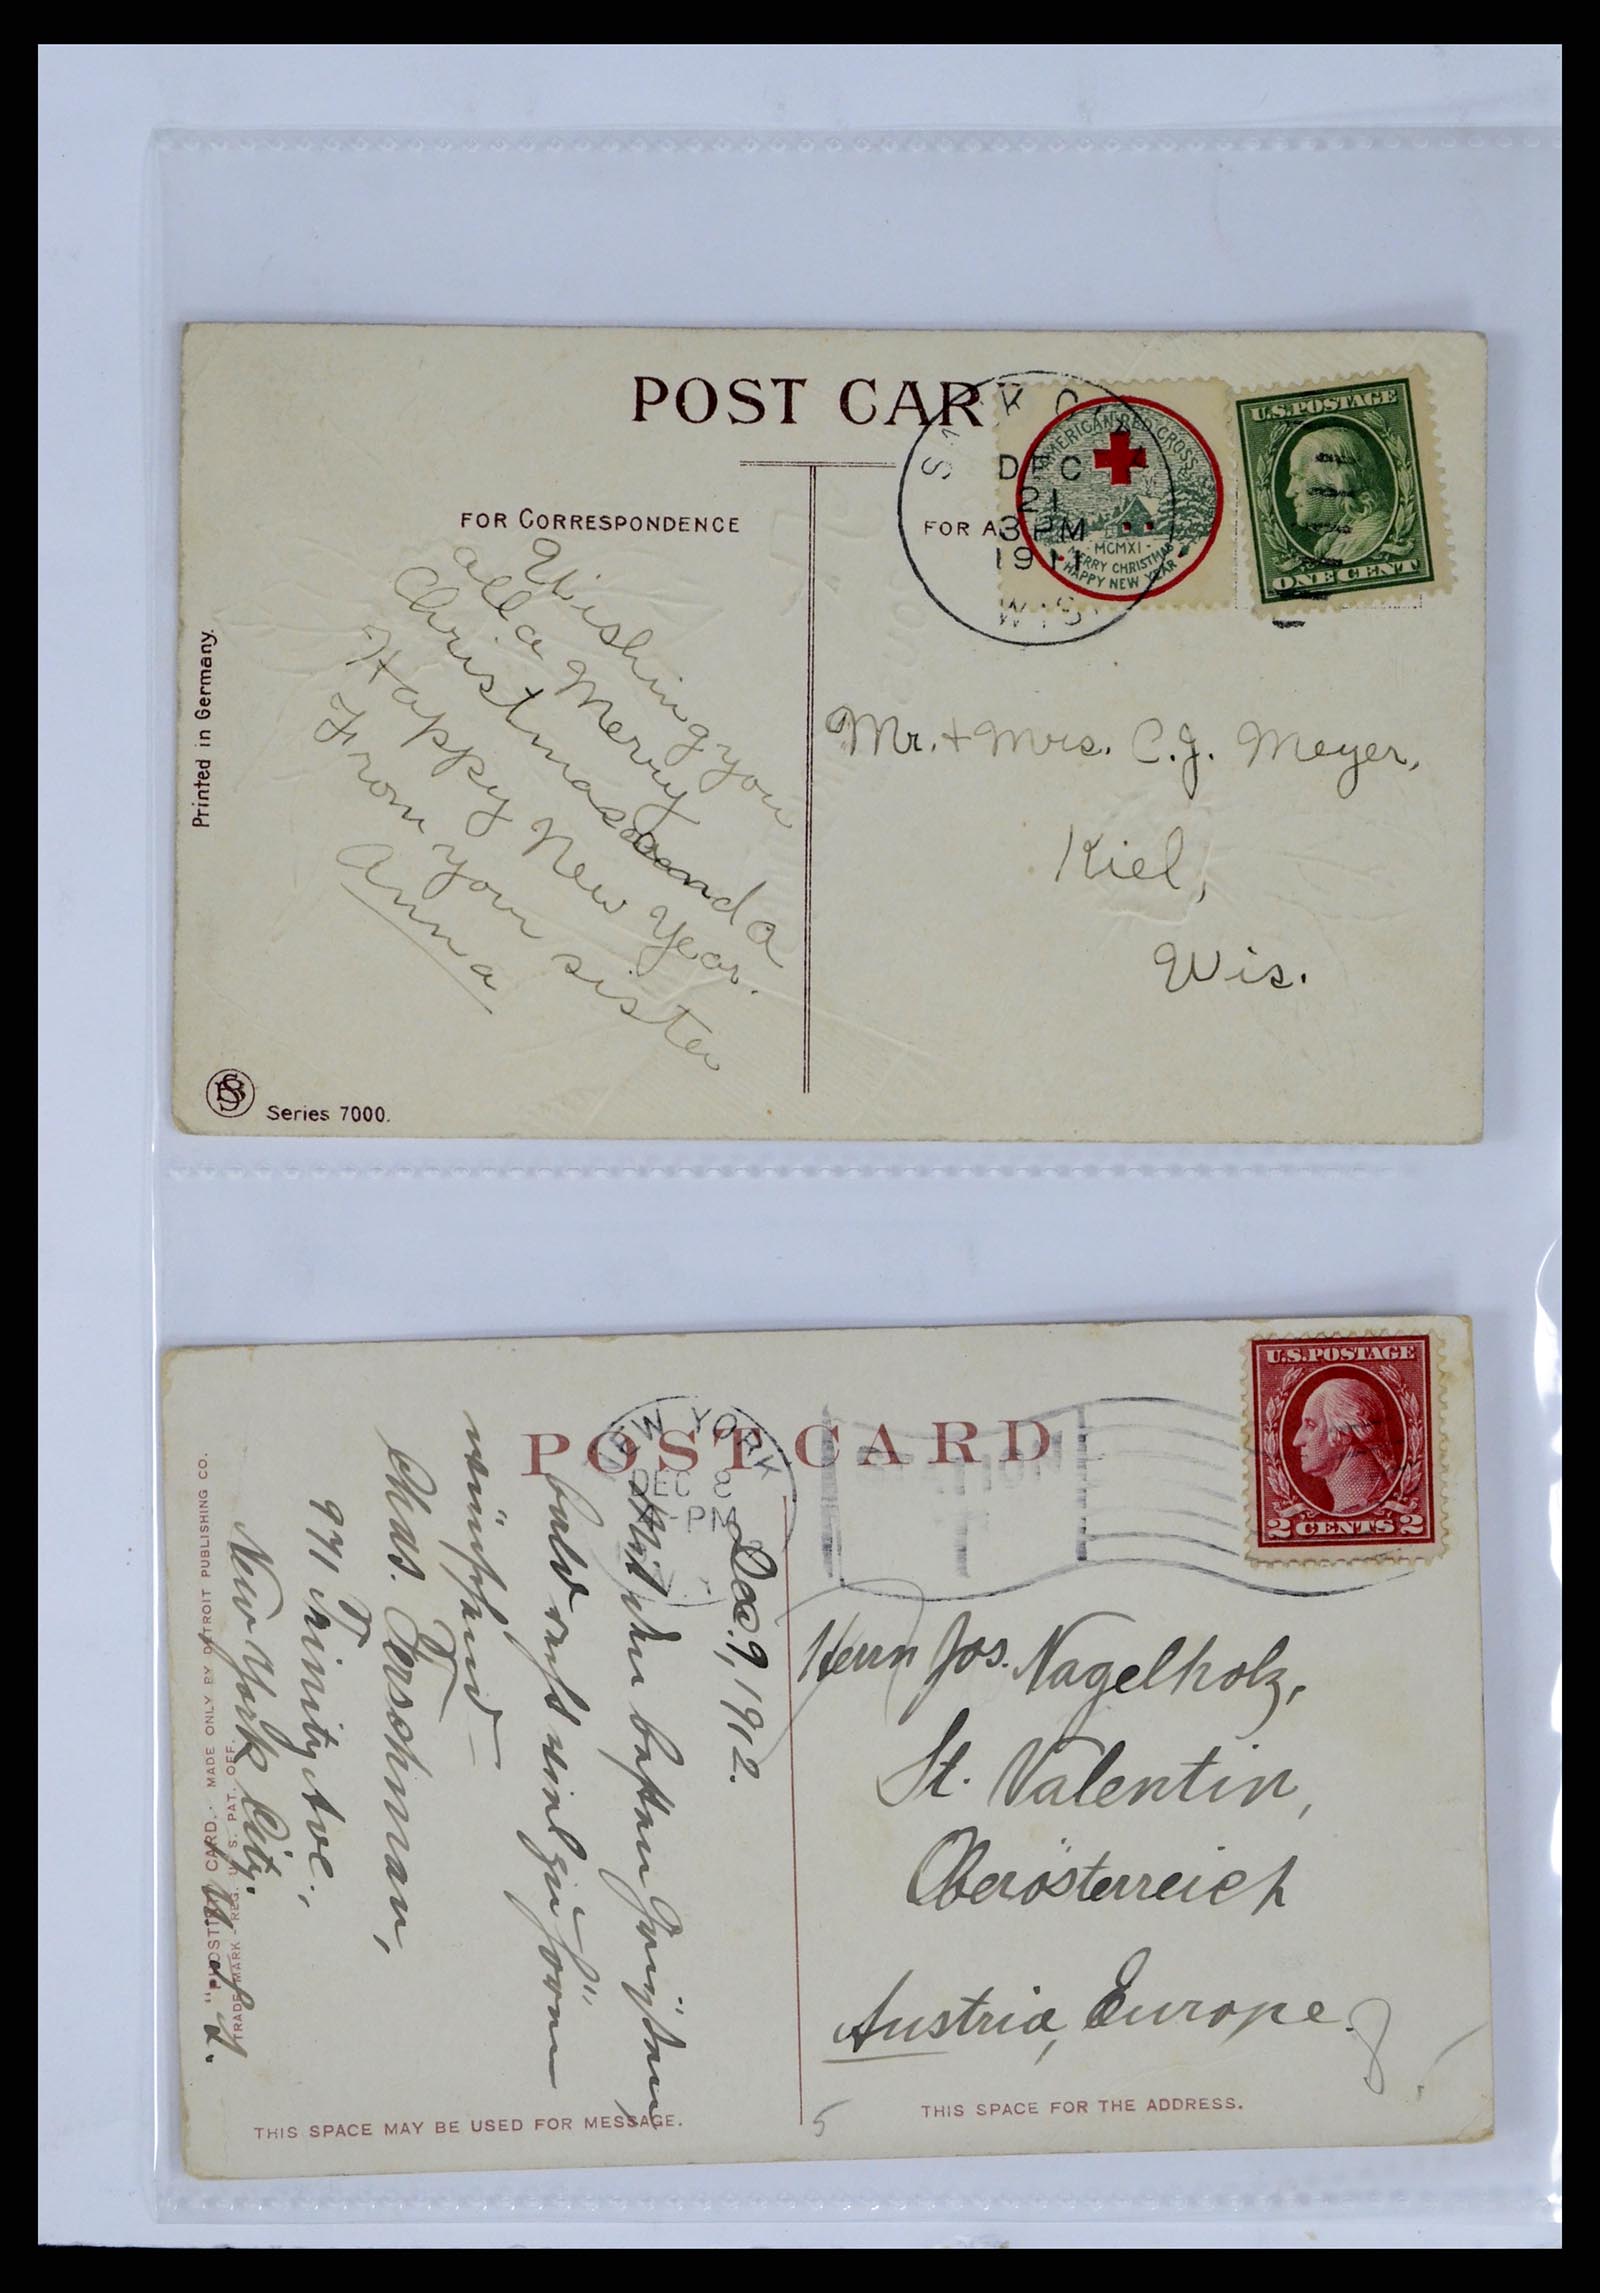 POST CARD
FOR CORRESPONDENCE
FOR A
DEC
21
3 PM
1911
WIS
AMERICAN RED CROSS
MCMXI
MERRY CHRISTMAS
HAPPY NEW YEAR
U.S.POSTAGE
ONE CENT
Wishing you
all a Merry
Christmas and a
Happy New Year.
From your sister
Anna
Mr. + Mrs. C.J. Meyer,
Kiel,
Wis.
Printed in Germany.
Series 7000.
POST CARD
NEW YORK
DEC 8
-PM
U.S.POSTAGE
2 CENTS 2
Dec. 9, 1912.
Mit den besten Grüßen,
bald
wünschend
Chas. Gersohman,
971 Trinity Ave.,
New York City.
Herrn Jos. Nagelholz,
St. Valentin,
Oberösterreich
Austria, Europe.
5
"PHOSTINT" CARD. MADE ONLY BY DETROIT PUBLISHING CO.
TRADE MARK - REG. U. S. PAT. OFF.
THIS SPACE MAY BE USED FOR MESSAGE.
THIS SPACE FOR THE ADDRESS.